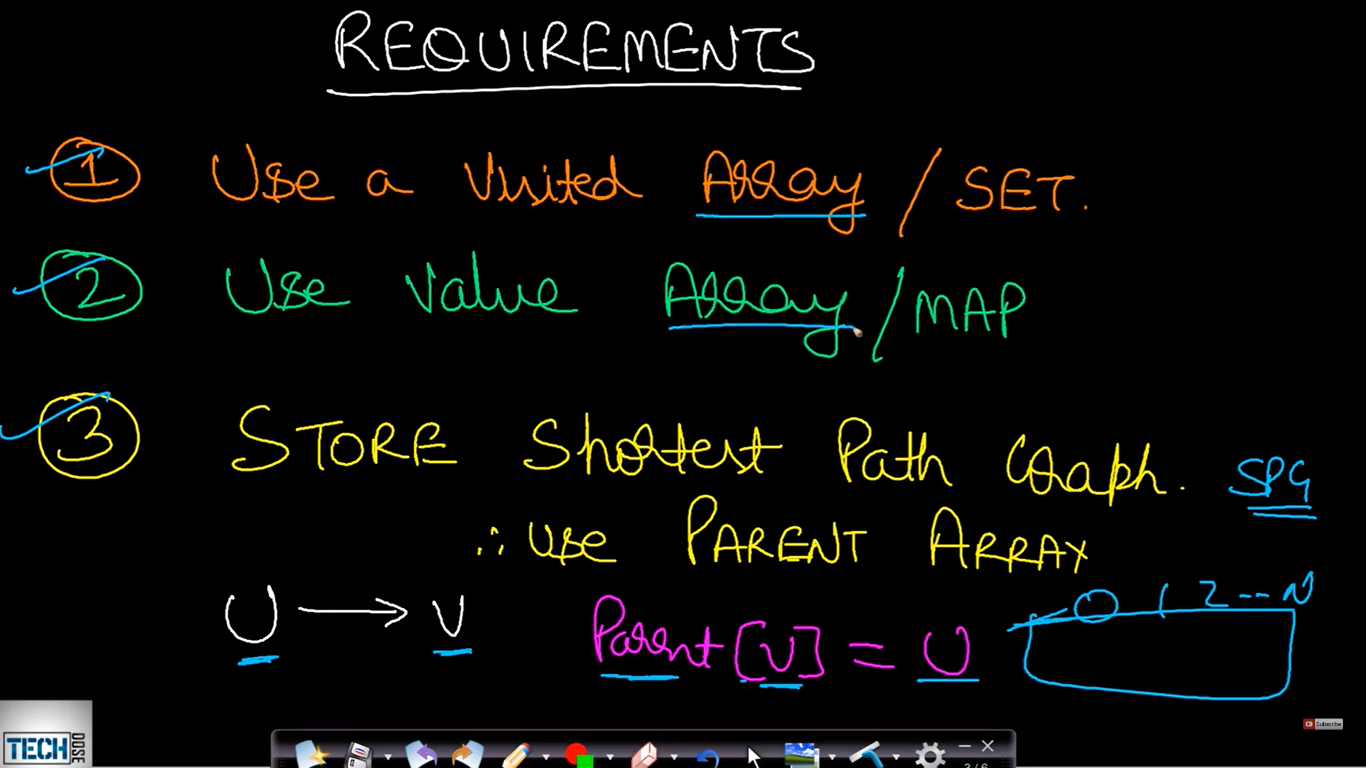 REQUIREMENTS
1 Use a Visited Array / SET.
2 Use Value Array / MAP
3 STORE Shortest Path Graph. SPG
∴ use PARENT ARRAY
0 1 2 -- N
U → V Parent [V] = U
Subscribe
TECH DOSE
2 / 6